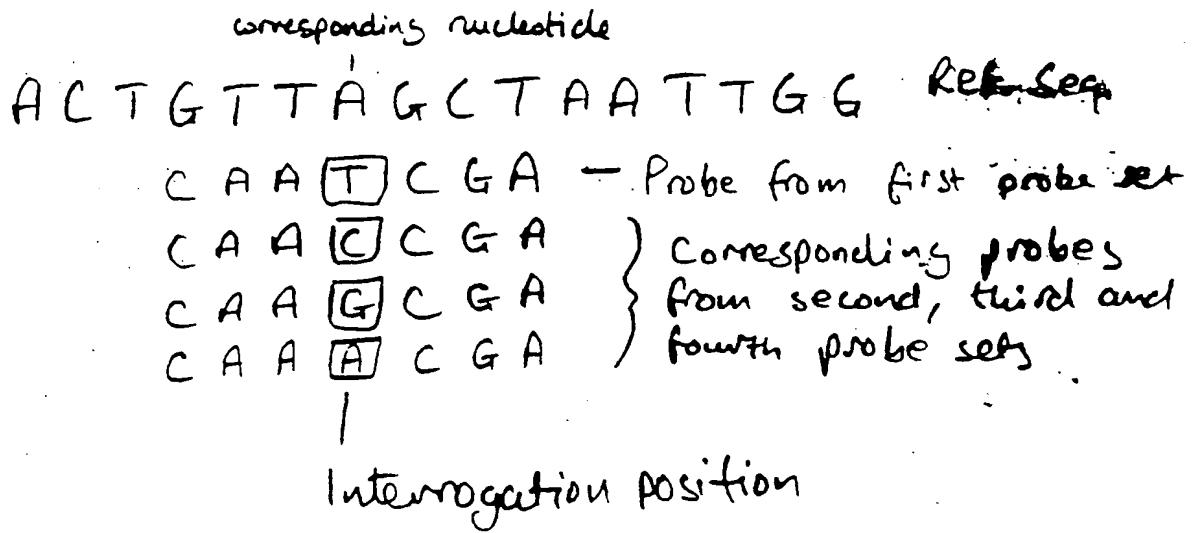 corresponding nucleotide
A C T G T T A G C T A A T T G G Ref. Seq.
C A A T C G A — Probe from first probe set
C A A C C G A
C A A G C G A
C A A A C G A
Corresponding probes
from second, third and
fourth probe sets
Interrogation position